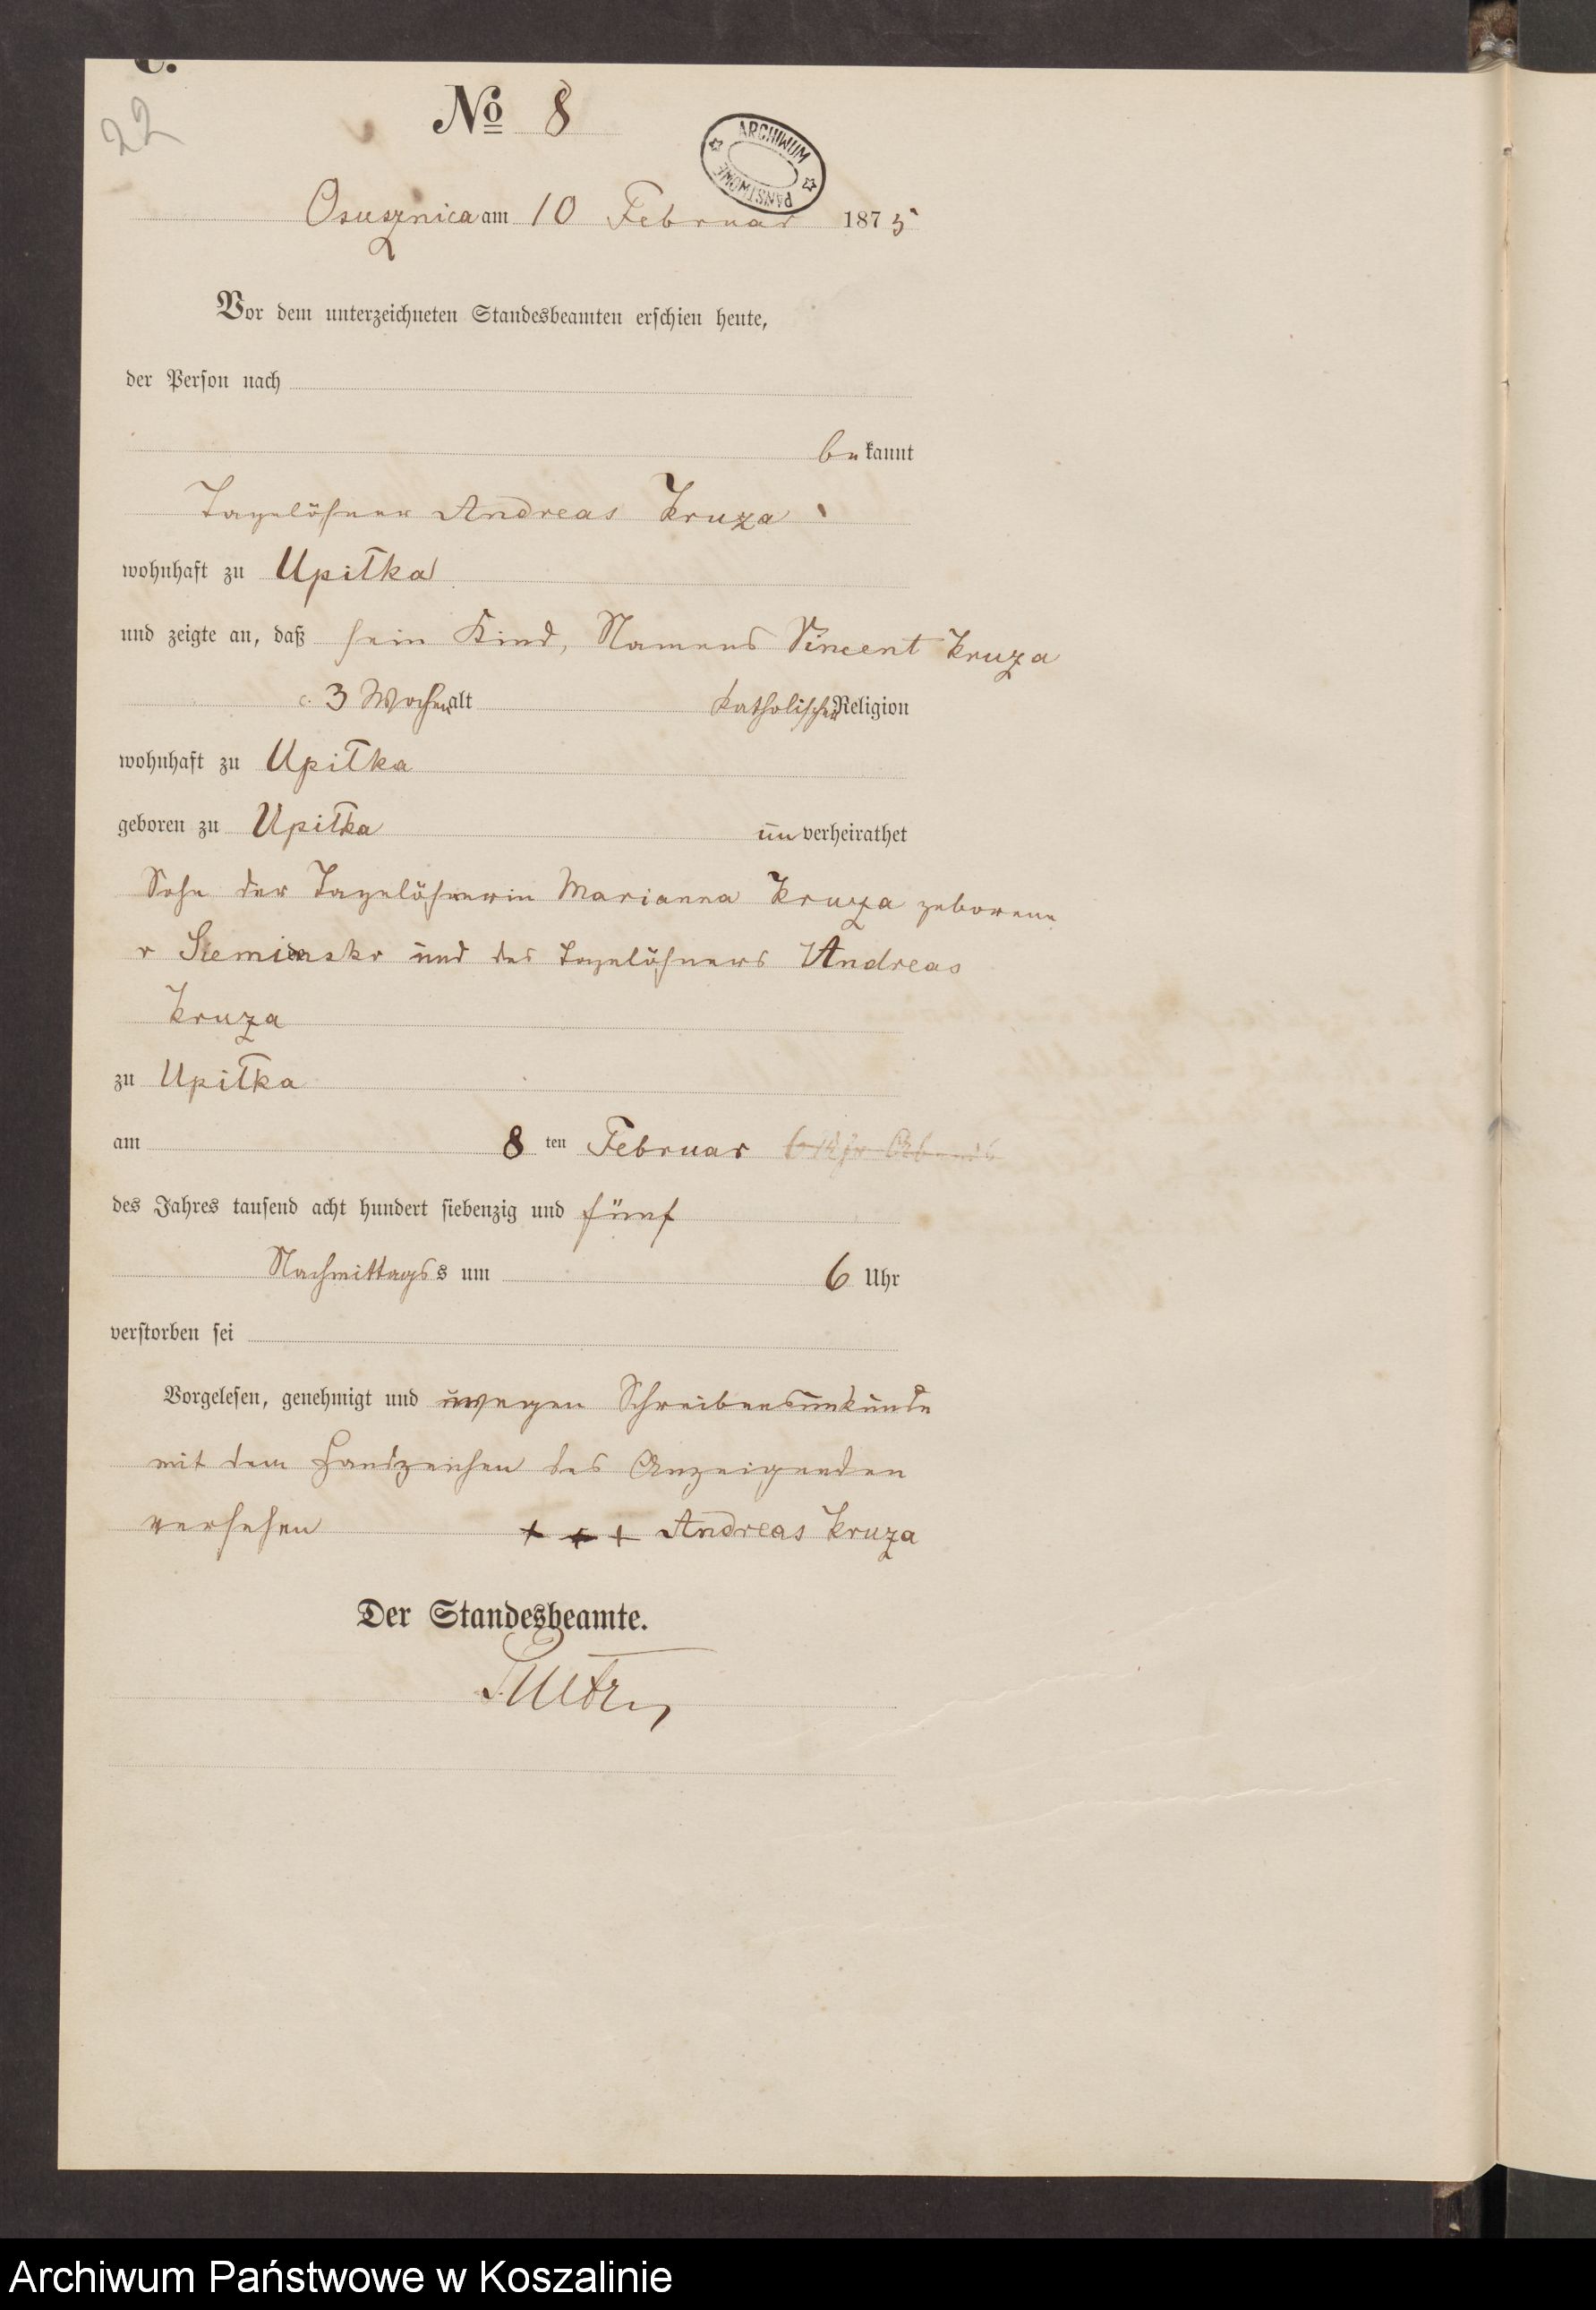 C.
22
No 8
ARCHIWUM PAŃSTWOWE
Osusznica am 10 Februar 1875
Vor dem unterzeichneten Standesbeamten erschien heute,
der Person nach
bekannt
Tagelöhner Andreas Kruza
wohnhaft zu Upiłka
und zeigte an, daß sein Kind, Namens Vincent Kruza
c. 3 Wochen alt katholischer Religion
wohnhaft zu Upiłka
geboren zu Upiłka unverheirathet
Sohn der Tagelöhnerin Marianna Kruza geborene
und des Tagelöhners Andreas
Kruza
zu Upiłka
am 8 ten Februar 6 Uhr Abends
des Jahres tausend acht hundert siebenzig und fünf
Nachmittags s um 6 Uhr
verstorben sei
Vorgelesen, genehmigt und wegen Schreibensunkunde
mit dem Handzeichen des Anzeigenden
versehen + + + Andreas Kruza
Der Standesbeamte.
Archiwum Państwowe w Koszalinie